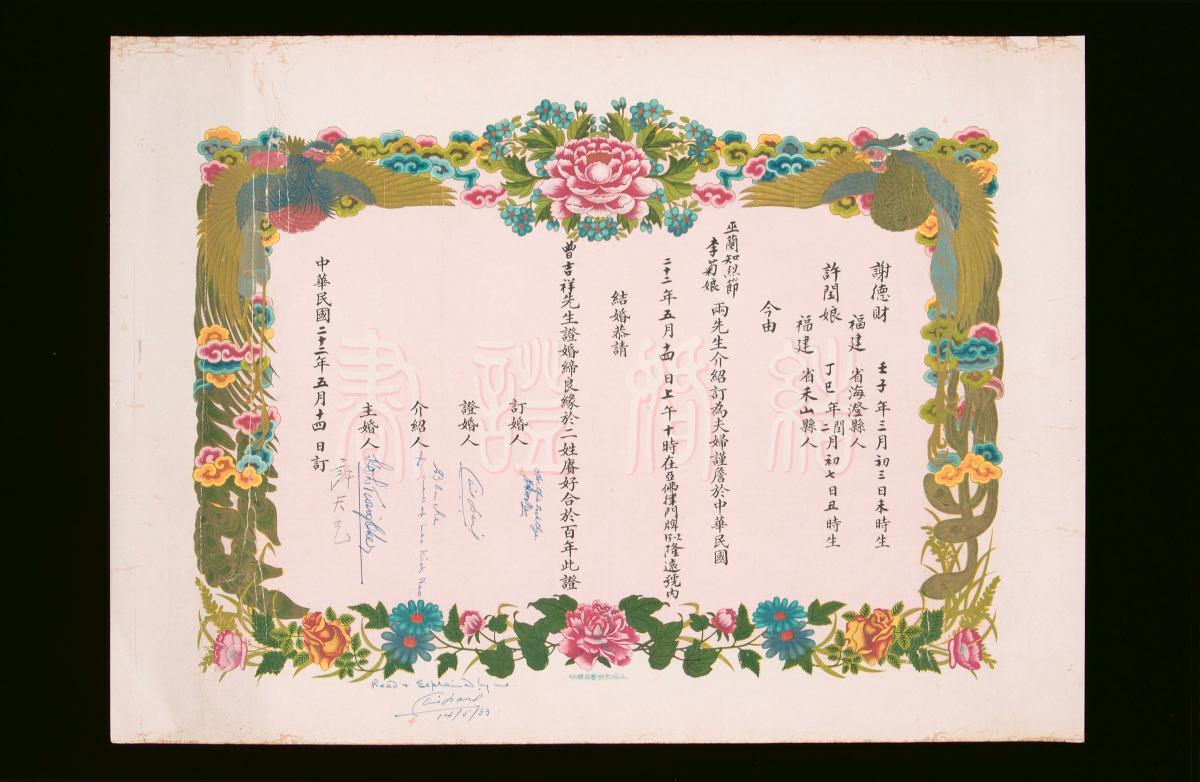 謝德財
福建 省海澄縣人
壬子 年三月初三日未時生
許閏娘
福建 省禾山縣人
丁巳 年閏二月初七日丑時生
今由
巫蘭知烈節
李菊娘
兩先生介紹訂為夫婦謹詹於中華民國
二十二年五月十四日上午十時在亞佛律門牌 隆遠號內
結婚恭請
曾吉祥先生證婚締良緣於二姓賡好合於百年此證
訂婚人
證婚人
介紹人
主婚人
許天乞
中華民國二十二年五月十四日訂
婚證書
Read & Explained by me.
14/5/33
上海文明書局